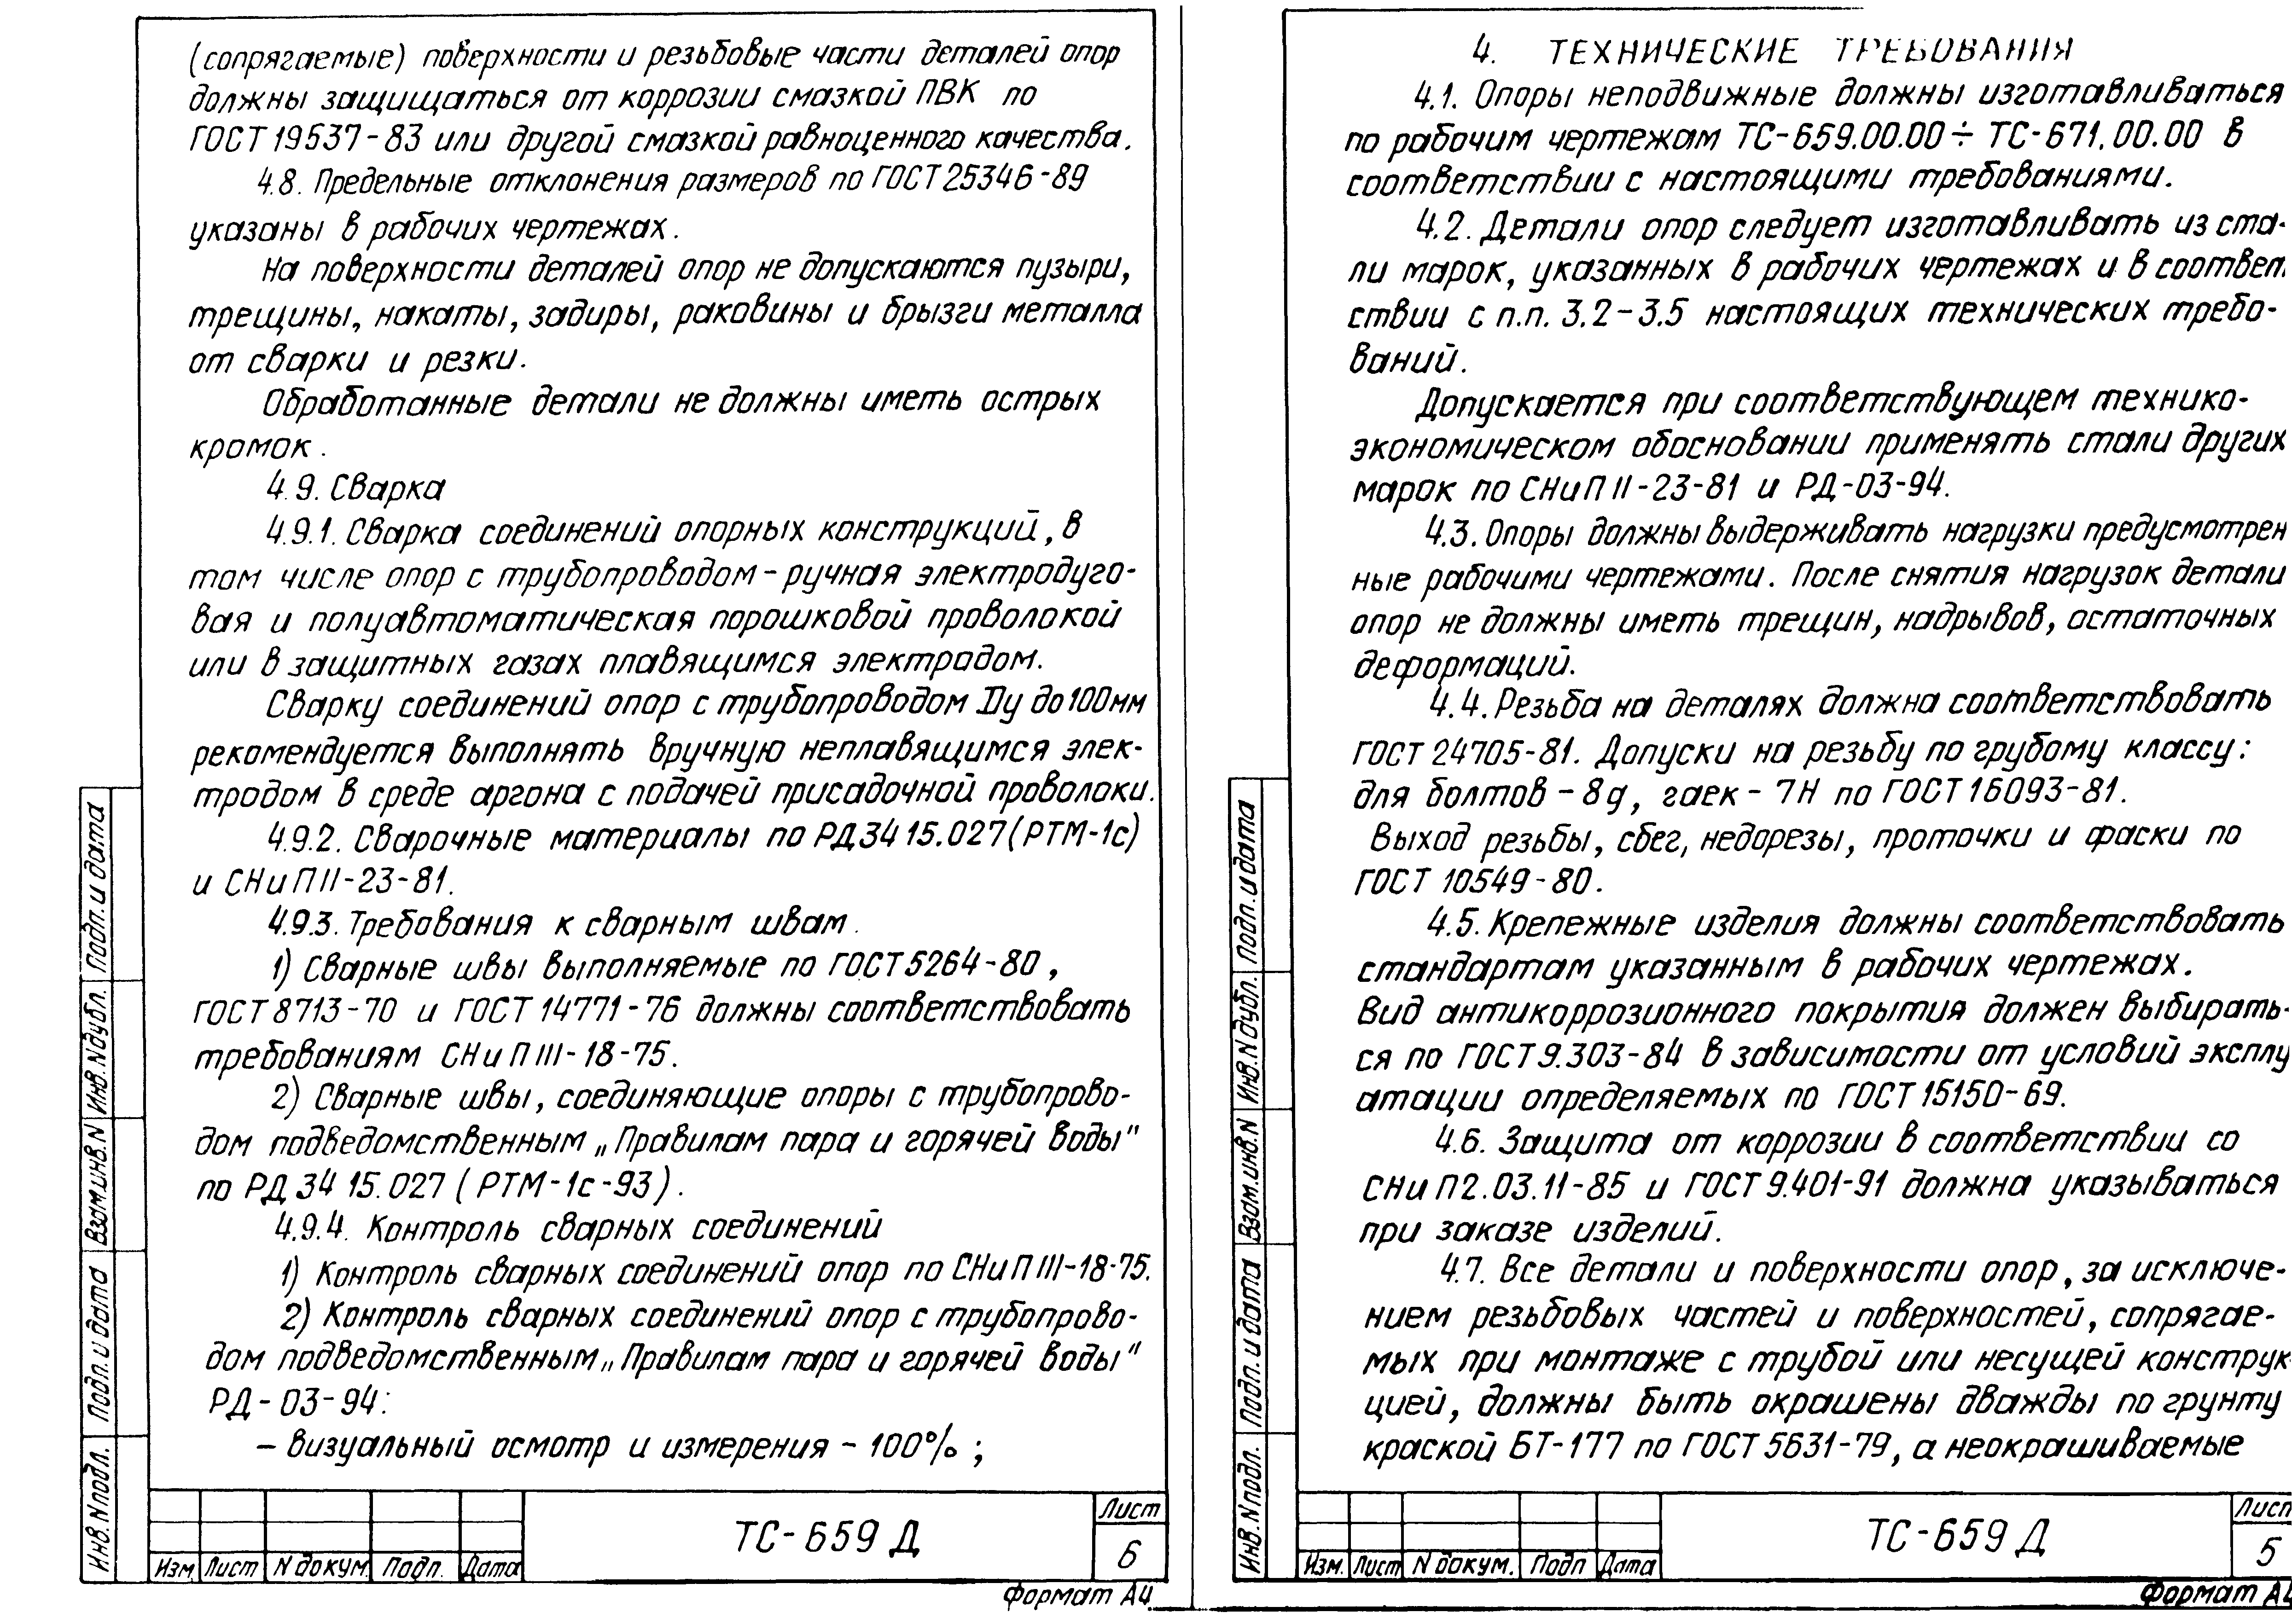 (сопрягаемые) поверхности и резьбовые части деталей опор
должны защищаться от коррозии смазкой ПВК по
ГОСТ 19537-83 или другой смазкой равноценного качества.
4.8. Предельные отклонения размеров по ГОСТ 25346-89
указаны в рабочих чертежах.
На поверхности деталей опор не допускаются пузыри,
трещины, накаты, задиры, раковины и брызги металла
от сварки и резки.
Обработанные детали не должны иметь острых
кромок.
4.9. Сварка
4.9.1. Сварка соединений опорных конструкций, в
том числе опор с трубопроводом - ручная электродуго-
вая и полуавтоматическая порошковой проволокой
или в защитных газах плавящимся электродом.
Сварку соединений опор с трубопроводом Dу до 100мм
рекомендуется выполнять вручную неплавящимся элек-
тродом в среде аргона с подачей присадочной проволоки.
4.9.2. Сварочные материалы по РД 34 15.027 (РТМ-1с)
и СНиП II-23-81.
4.9.3. Требования к сварным швам.
1) Сварные швы выполняемые по ГОСТ 5264-80,
ГОСТ 8713-70 и ГОСТ 14771-76 должны соответствовать
требованиям СНиП III-18-75.
2) Сварные швы, соединяющие опоры с трубопрово-
дом подведомственным „Правилам пара и горячей воды"
по РД 34 15.027 (РТМ-1с-93).
4.9.4. Контроль сварных соединений
1) Контроль сварных соединений опор по СНиП III-18-75.
2) Контроль сварных соединений опор с трубопрово-
дом подведомственным „Правилам пара и горячей воды"
РД-03-94:
- визуальный осмотр и измерения - 100%;
Инв. N подл. Подп. и дата Взам. инв. N Инв. N дубл. Подп. и дата
Изм Лист N докум. Подп. Дата
ТС-659 Д
Лист
6
Формат А4
4. ТЕХНИЧЕСКИЕ ТРЕБОВАНИЯ
4.1. Опоры неподвижные должны изготавливаться
по рабочим чертежам ТС-659.00.00÷ТС-671.00.00 в
соответствии с настоящими требованиями.
4.2. Детали опор следует изготавливать из ста-
ли марок, указанных в рабочих чертежах и в соответ
ствии с п.п. 3.2-3.5 настоящих технических требо-
ваний.
Допускается при соответствующем технико-
экономическом обосновании применять стали других
марок по СНиП II-23-81 и РД-03-94.
4.3. Опоры должны выдерживать нагрузки предусмотрен
ные рабочими чертежами. После снятия нагрузок детали
опор не должны иметь трещин, надрывов, остаточных
деформаций.
4.4. Резьба на деталях должна соответствовать
ГОСТ 24705-81. Допуски на резьбу по грубому классу:
для болтов - 8g, гаек - 7Н по ГОСТ 16093-81.
Выход резьбы, сбег, недорезы, проточки и фаски по
ГОСТ 10549-80.
4.5. Крепежные изделия должны соответствовать
стандартам указанным в рабочих чертежах.
Вид антикоррозионного покрытия должен выбирать-
ся по ГОСТ 9.303-84 в зависимости от условий эксплу
атации определяемых по ГОСТ 15150-69.
4.6. Защита от коррозии в соответствии со
СНиП 2.03.11-85 и ГОСТ 9.401-91 должна указываться
при заказе изделий.
4.7. Все детали и поверхности опор, за исключе-
нием резьбовых частей и поверхностей, сопрягае-
мых при монтаже с трубой или несущей конструк
цией, должны быть окрашены дважды по грунту
краской БТ-177 по ГОСТ 5631-79, а неокрашиваемые
Инв. N подл. Подп. и дата Взам. инв. N Инв. N дубл. Подп. и дата
Изм. Лист N докум. Подп Дата
ТС-659 Д
Лист
5
Формат А4